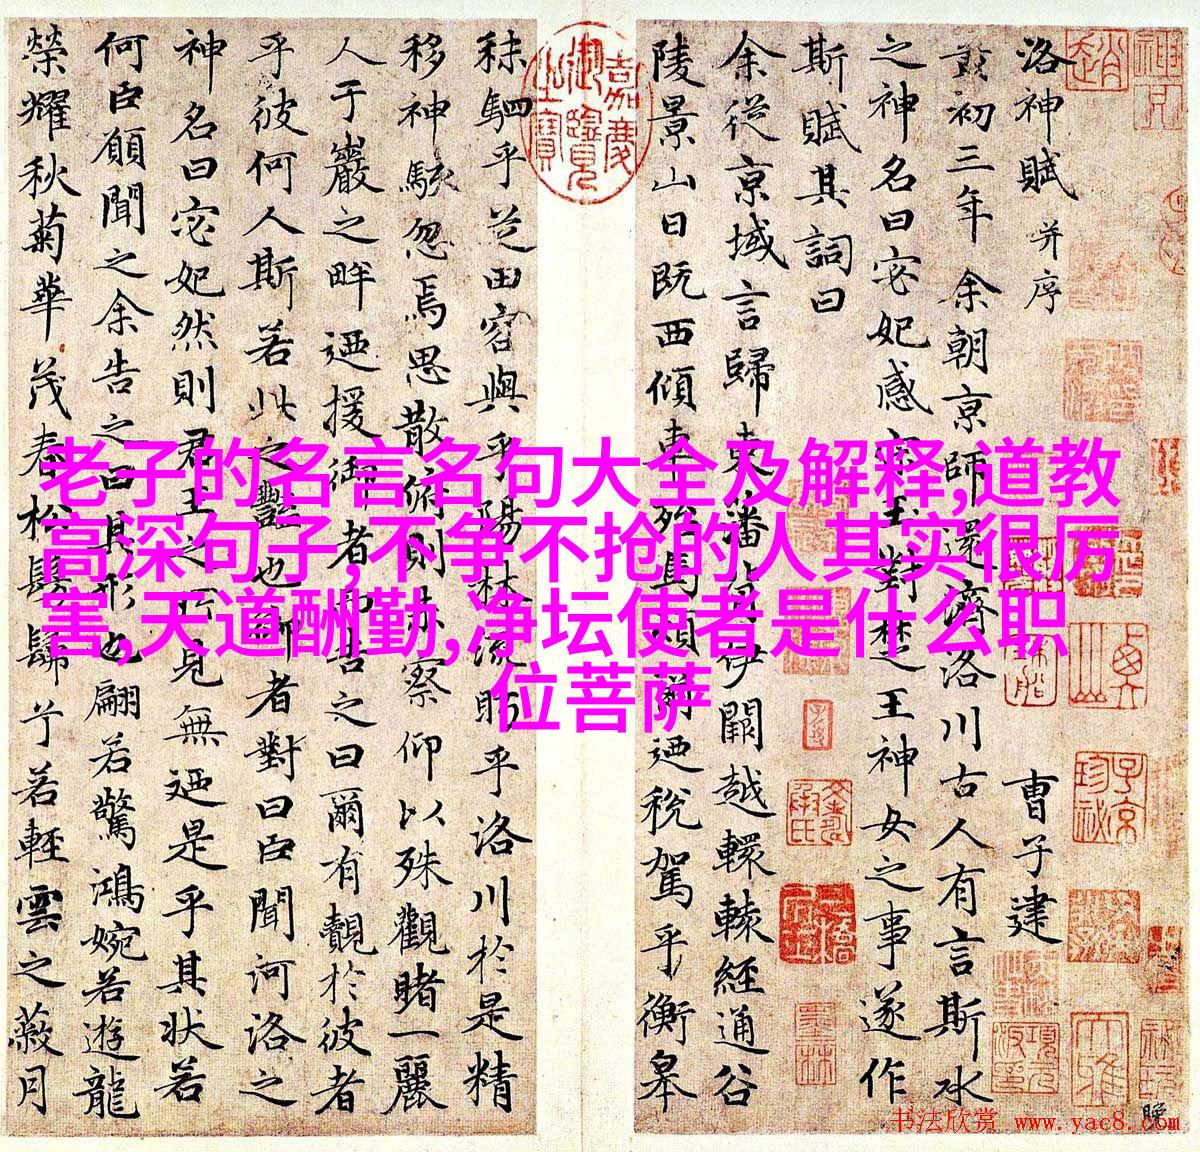 洛神賦 并序
曹子建
黃初三年余朝京師還濟洛川古人有言斯水
之神名曰宓妃感宋玉對楚王神女之事遂作
斯賦其詞曰
余從京域言歸東藩背伊闕越轘轅經通谷
陵景山日既西傾車殆馬煩爾迺稅駕乎衡皋
秣駟乎芝田容與乎陽林流眄乎洛川於是精
移神駭忽焉思散俯則未察仰以殊觀睹一麗
人于巖之畔迺援御者而告之曰爾有覿於彼者
乎彼何人斯若此之豔也御者對曰臣聞河洛之
神名曰宓妃然則君王之所見無迺是乎其狀若
何臣願聞之余告之曰其形也翩若驚鴻婉若遊龍
榮耀秋菊華茂春松髣髴兮若輕雲之蔽月
嘉慶御覽之寶
老子的名言名句大全及解释,道教
高深句子,不争不抢的人其实很厉
害,天道酬勤,净坛使者是什么职
位菩萨
书法欣赏 www.yac8.com